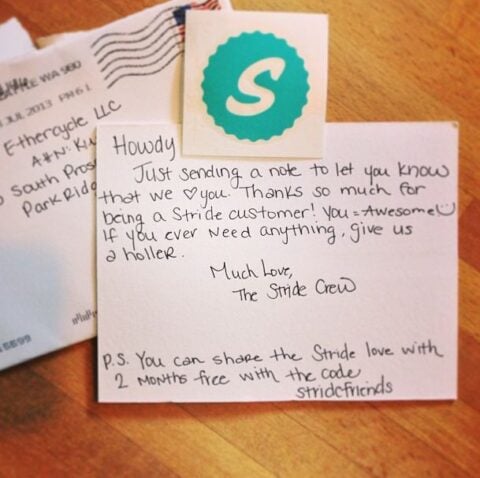 S
WA 980
JUL 2013 PM 6 L
Ethercycle LLC
South
Park Ridg
Howdy
Just sending a note to let you know
that we ♡ you. Thanks so much for
being a Stride customer! You = Awesome!
If you ever need anything, give us
a holler.
Much Love,
The Stride Crew
P.S. You can share the Stride love with
2 months free with the code
stridefriends